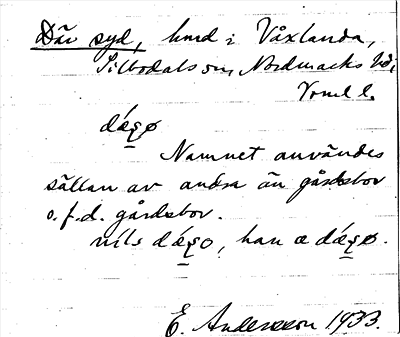 Där syd, hmd i Våxlanda,
Silbodals sn, Nordmarks hd,
Vrml l.
dǽgø
Namnet användes
sällan av andra än gårdsbor
o.f.d. gårdsbor.
nils dǽgo, han æ dǽgø.
E. Andersson 1933.